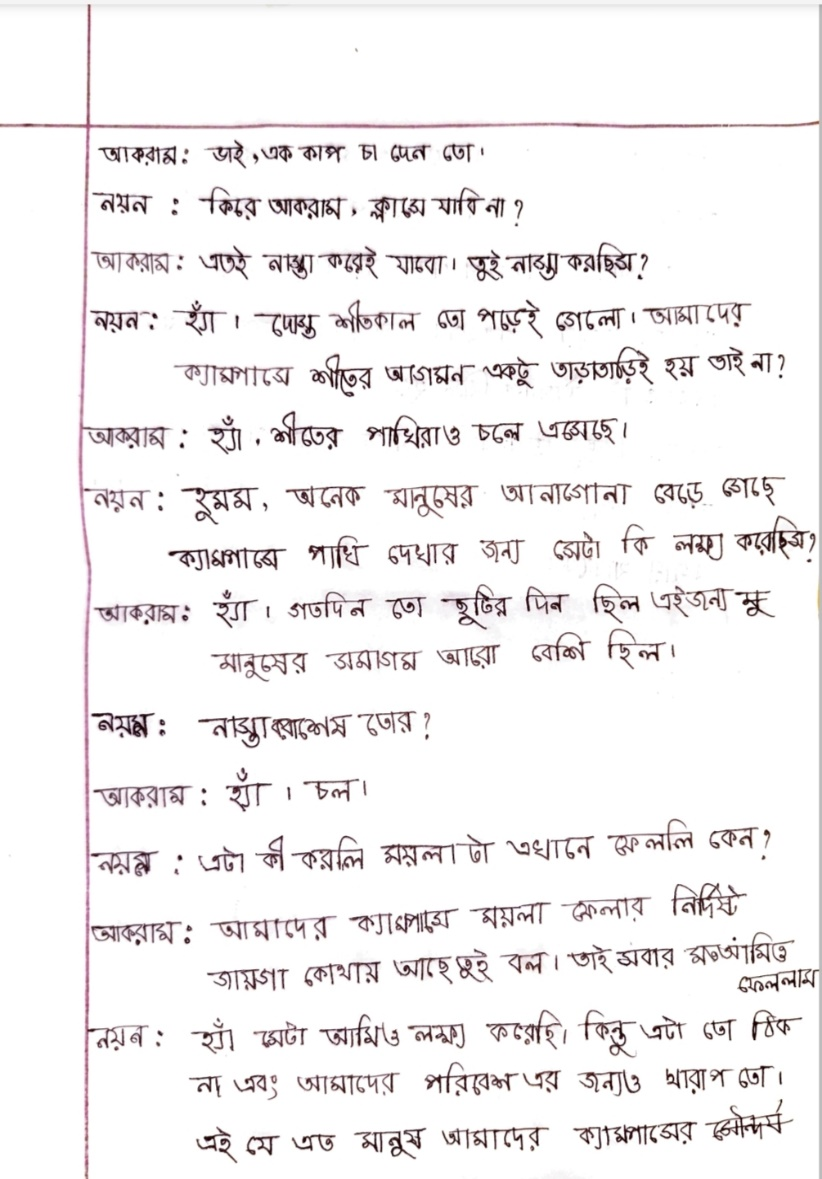 আকরাম: ভাই, এক কাপ চা দেন তো।
নয়ন : কিরে আকরাম, ক্লাসে যাবি না?
আকরাম: এতই নাস্তা করেই যাবো। তুই নাস্তা করছিস?
নয়ন: হ্যাঁ। দোস্ত শীতকাল তো পড়েই গেলো। আমাদের
ক্যাম্পাসে শীতের আগমন একটু তাড়াতাড়িই হয় তাই না?
আকরাম: হ্যাঁ, শীতের পাখিরাও চলে এসেছে।
নয়ন: হুমম, অনেক মানুষের আনাগোনা বেড়ে গেছে
ক্যামপাসে পাখি দেখার জন্য সেটা কি লক্ষ্য করেছিস?
আকরাম: হ্যাঁ। গতদিন তো ছুটির দিন ছিল এইজন্য
মানুষের সমাগম আরো বেশি ছিল।
নয়ন: নাস্তা করা শেষ তোর?
আকরাম: হ্যাঁ। চল।
নয়ন: এটা কী করলি ময়লা টা এখানে ফেললি কেন?
আকরাম: আমাদের ক্যাম্পাসে ময়লা ফেলার নির্দিষ্ট
জায়গা কোথায় আছে তুই বল। তাই সবার মত আমিও
ফেললাম
নয়ন: হ্যাঁ সেটা আমিও লক্ষ্য করেছি, কিন্তু এটা তো ঠিক
না এবং আমাদের পরিবেশ এর জন্যও খারাপ তো।
এই যে এত মানুষ আমাদের ক্যামপাসের সৌন্দর্য